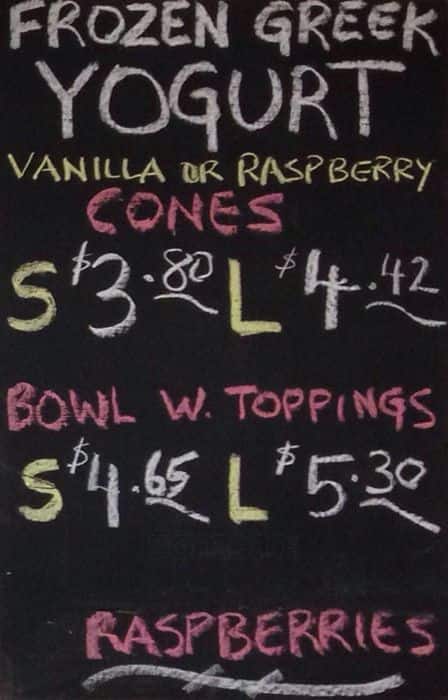 FROZEN GREEK
YOGURT
VANILLA OR RASPBERRY
CONES
S $3.80 L $4.42
BOWL W. TOPPINGS
S $4.65 L $5.30
RASPBERRIES